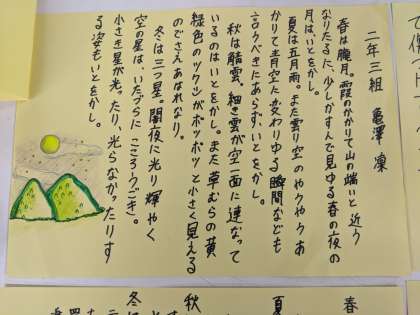 二年三組　亀澤　凜
春は朧月。霞のかかりて山の端いと近う
なりたるに、少しかすんで見ゆる春の夜の
月はいとをかし。
夏は五月雨。また雲り空のやうやうあ
かりて青空に変わりゆる瞬間なども
言うべきにあらず、いとをかし。
秋は鱗雲。細き雲が空一面に連なって
いるのはいとをかし。また草むらの黄
緑色のツクシがポツポツと小さく見える
のでさえあはれなり。
冬は三つ星。闇夜に光り輝やく
空の星は、いたづらにこころうごき。
小さき星が光ったり、光らなかったりす
る姿もいとをかし。
春
夏
秋
冬に